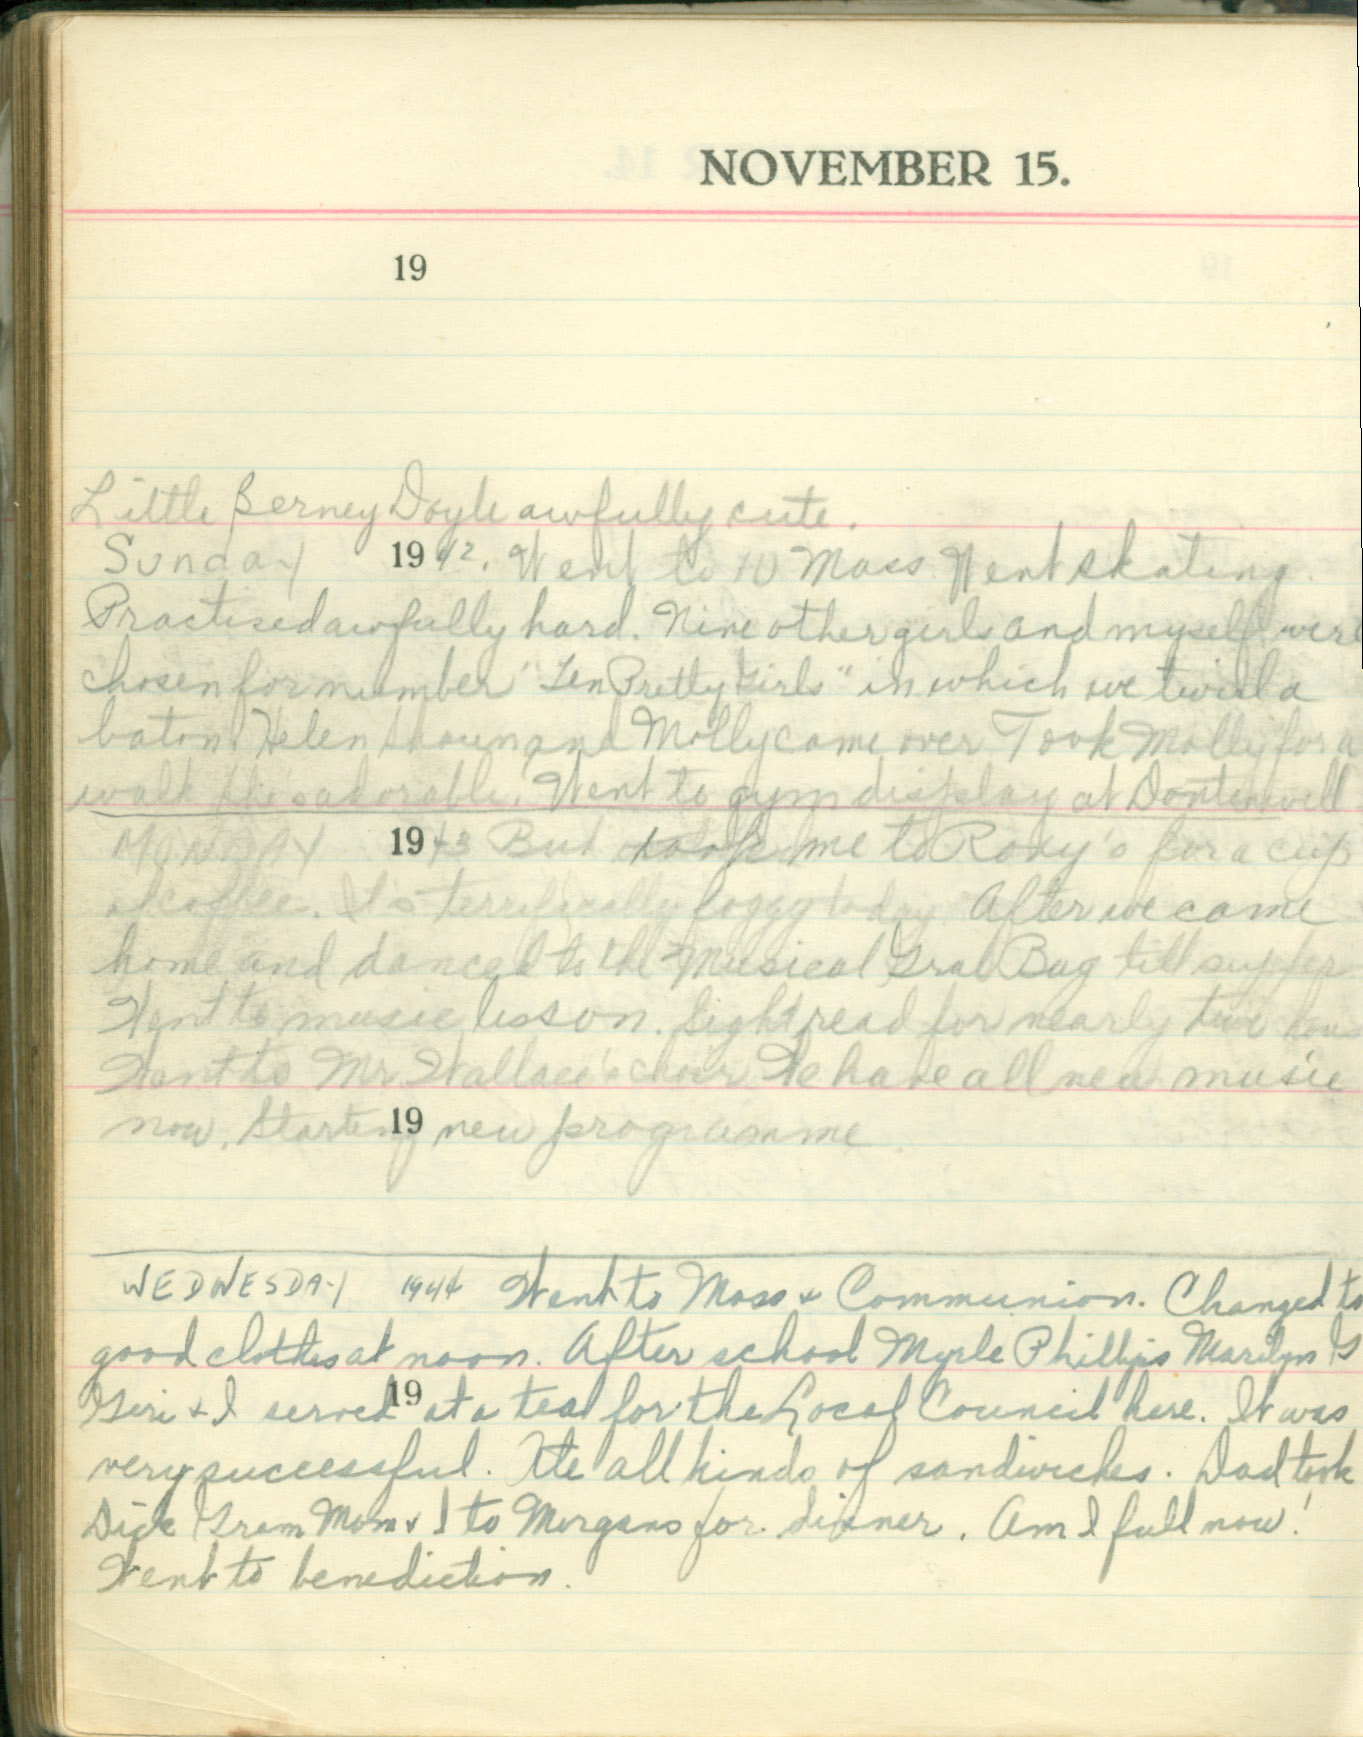 NOVEMBER 15.
19
Little Berney Doyle awfully cute.
Sunday 1942. Went to 10 Mass Went skating.
Practised awfully hard. Nine other girls and myself were
chosen for number "Ten Pretty Girls" in which we twirl a
baton. Helen and Molly came over Took Molly for a
walk adorable. Went to gym display at
MONDAY 1943 But took me to Roxy's for a cup
of coffee. It's terrifically foggy today After we came
home and danced to the Musical Grab Bag till supper
Went to music lesson. Sight read for nearly two
Went to Mr Wallace's choir We have all new music
now. Starting 19 new programme.
WEDNESDAY 1944 Went to Mass & Communion. Changed to
good clothes at noon. After school Myrle Phillips Marilyn G
Geri & I served 19 at a tea for the Local Council here. It was
very successful. Ate all kinds of sandwiches. Dad took
Dick Gram Mom & I to Morgans for dinner. Am I full now!
Went to benediction.